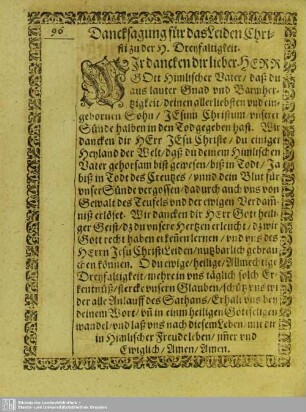 96
Dancksagung für das Leiden Chri-
sti zu der H. Dreyfaltigkeit.
WIr dancken dir lieber HERR
GOtt Himlischer Vater / daß du
aus lauter Gnad vnd Barmher-
tzigkeit / deinen aller liebsten vnd ein-
gebornen Sohn / JEsum Christum / vnserer
Sünde halben in den Tod gegeben hast. Wir
dancken dir HErr JEsu Christe / du einiger
Heyland der Welt / daß du deinem Himlischen
Vater gehorsam bist gewesen / biß in Todt / Ja
biß in Todt des Creutzes / vnnd dein Blut für
vnser Sünde vergossen / dadurch auch vns von
Gewalt des Teufels vnd der ewigen Verdam-
niß erlöset. Wir dancken dir HErr Gott heili-
ger Geist / dz du vnsere Hertzen erleucht / dz wir
Gott recht haben erkennen lernen / vnd vns des
HErrn Jesu Christi Leiden / nutzbarlich gebrau-
chen können. O du ewige / heilige / Allmächtige
Dreyfaltigkeit / mehre in vns täglich solch Er-
kentnüß / stercke vnsern Glauben / schütz vns wi-
der alle Anlauff des Sathans / Erhalt vns bey
deinem Wort / vn̄ in einem heiligen Gottseligen
wandel / vnd laß vns nach diesem Leben / mit dir
in Himlischer Freude leben / im̄er vnd
Ewiglich / Amen / Amen.